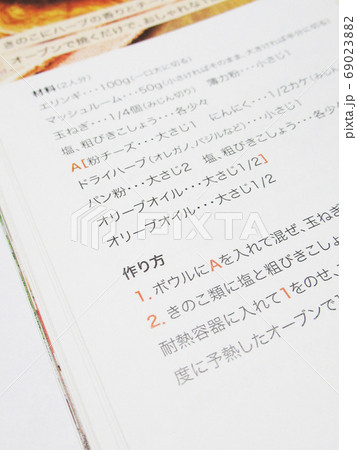 きのこにハーブの香りとチ
オーブンで焼くだけで、おしゃれな
材料(2人分)
エリンギ・・・100g(一口大に切る)
マッシュルーム・・・50g(小さければそのまま、大きければ半分に切る)
玉ねぎ・・・1/4個(みじん切り) 薄力粉・・・小さじ1
塩、粗びきこしょう・・・各少々
A[粉チーズ・・・大さじ1 にんにく・・・1/2カケ(みじん
ドライハーブ(オレガノ、バジルなど)・・・小さじ1
パン粉・・・大さじ2 塩、粗びきこしょう・・・各少々
オリーブオイル・・・大さじ1/2]
オリーブオイル・・・大さじ1/2
作り方
1. ボウルにAを入れて混ぜ、玉ねぎ
2. きのこ類に塩と粗びきこしょ
耐熱容器に入れて1をのせ、
度に予熱したオーブンで
PIXTA
69023882